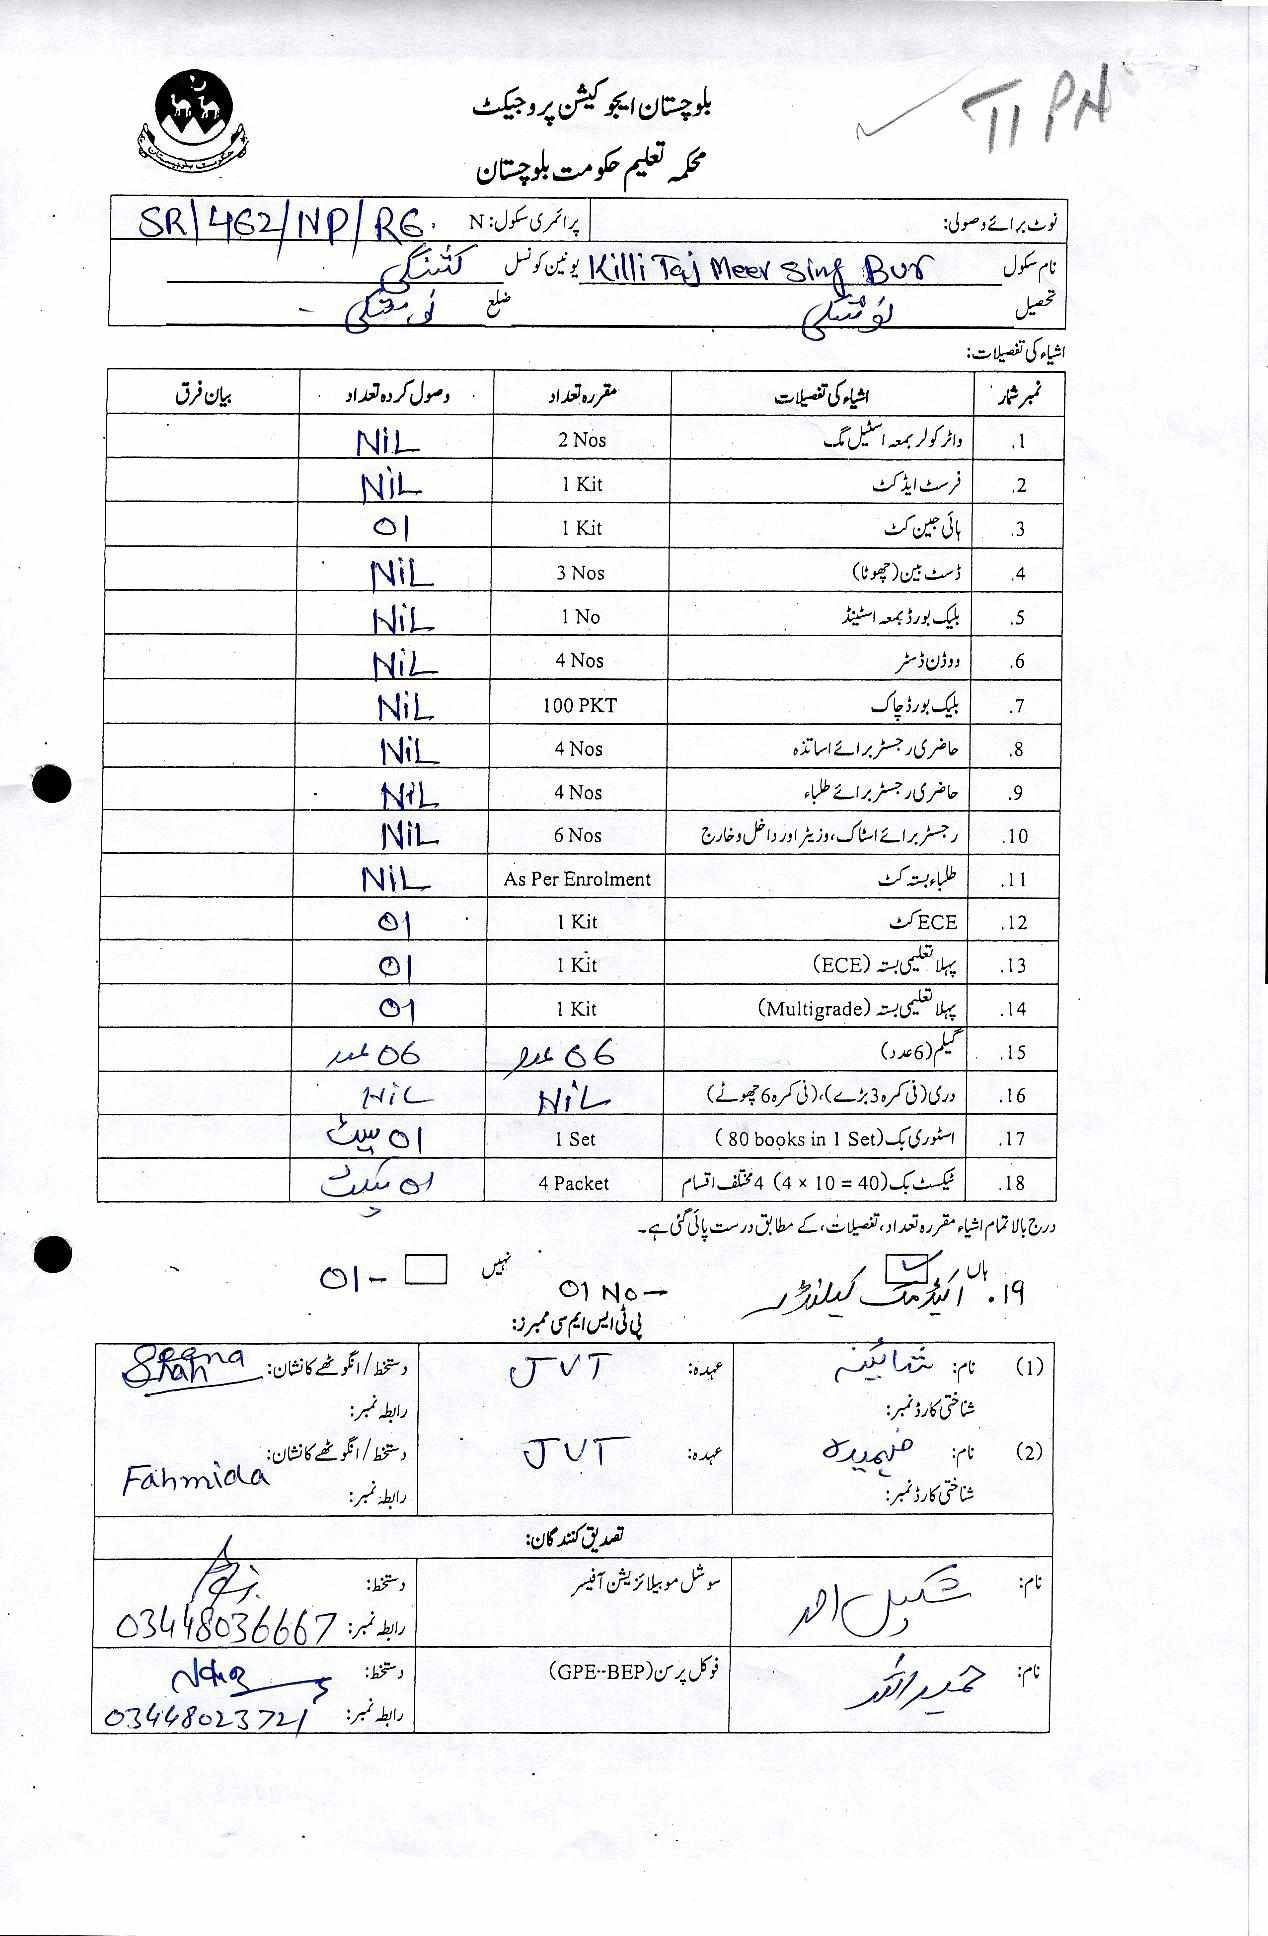 TI PH
بلوچستان ایجوکیشن پروجیکٹ
محکمہ تعلیم حکومت بلوچستان
نوٹ برائے وصولی: پرائمری سکول: N SR/462/NP/RG.
نام سکول Killi Taj Meer Sing Bur یونین کونسل
تحصیل نوشکی ضلع نوشکی
اشیاء کی تفصیلات:
نمبر شمار اشیاء کی تفصیلات مقررہ تعداد وصول کردہ تعداد بیان فرق
.1 واٹر کولر بمعہ اسٹیل مگ 2 Nos NiL
.2 فرسٹ ایڈ کٹ 1 Kit NiL
.3 ہائی جین کٹ 1 Kit 01
.4 ڈسٹ بین (چھوٹا) 3 Nos NiL
.5 بلیک بورڈ بمعہ اسٹینڈ 1 No NiL
.6 ووڈن ڈسٹر 4 Nos NiL
.7 بلیک بورڈ چاک 100 PKT NiL
.8 حاضری رجسٹر برائے اساتذہ 4 Nos NiL
.9 حاضری رجسٹر برائے طلباء 4 Nos NiL
.10 رجسٹر برائے اسٹاک، وزیٹر اور داخل و خارج 6 Nos NiL
.11 طلباء بستہ کٹ As Per Enrolment NiL
.12 ECE کٹ 1 Kit 01
.13 پہلا تعلیمی بستہ (ECE) 1 Kit 01
.14 پہلا تعلیمی بستہ (Multigrade) 1 Kit 01
.15 گلیم (6 عدد) 06 عدد 06 عدد
.16 دری (فی کمرہ 3 بڑے)، (فی کمرہ 6 چھوٹے) NiL NiL
.17 اسٹوری بک (80 books in 1 Set) 1 Set 01 سیٹ
.18 ٹیکسٹ بک (4 × 10 = 40) 4 مختلف اقسام 4 Packet 01 پیکٹ
درج بالا تمام اشیاء مقررہ تعداد، تفصیلات، کے مطابق درست پائی گئی ہے۔
ہاں نہیں
۱۹. اکیڈمک کیلنڈر 01 No- 01-
پی ٹی ایس ایم سی ممبرز:
(1) نام: شابینہ عہدہ: JVT دستخط/انگوٹھے کا نشان:
شناختی کارڈ نمبر: رابطہ نمبر:
(2) نام: فہمیدہ عہدہ: JVT دستخط/انگوٹھے کا نشان: Fahmida
شناختی کارڈ نمبر: رابطہ نمبر:
تصدیق کنندگان:
نام: شکیل احمد سوشل موبیلائزیشن آفیسر دستخط:
رابطہ نمبر: 03448036667
نام: حمید اللہ فوکل پرسن (GPE-BEP) دستخط:
رابطہ نمبر: 03448023721